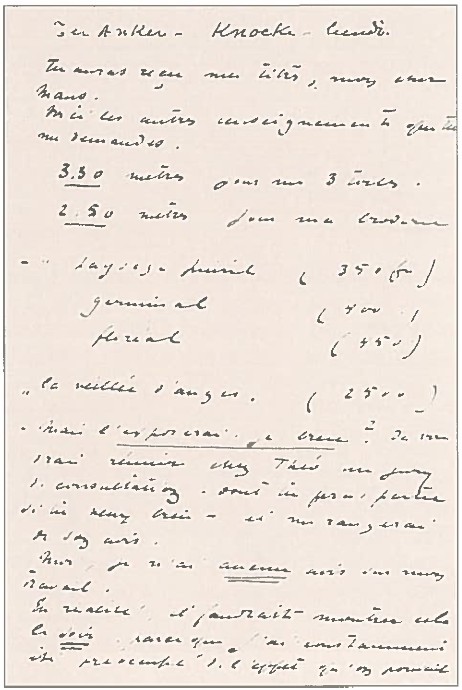 Ter Anker - Knocke - lundi.
Tu auras reçu mes titres, mon cher
Hans.
Voici les autres renseignements que tu
me demandes.
3.50 mètres pour mes 3 toiles.
2.50 mètres pour ma broderie
paysage ( 350 fr )
germinal ( 400 )
floréal ( 450 )
"la veillée d'anges. ( 2500 )
Mais l'exposerai-je ? Je
réunir chez Théo un jury
de consultation. dont tu feras partie
si tu veux bien - et me rangerai
de son avis.
Moi, je n'ai aucun avis sur mon
travail.
En réalité, il faudrait montrer cela
le soir parce que j'ai constamment
été préoccupé de l'effet qu'on pouvait